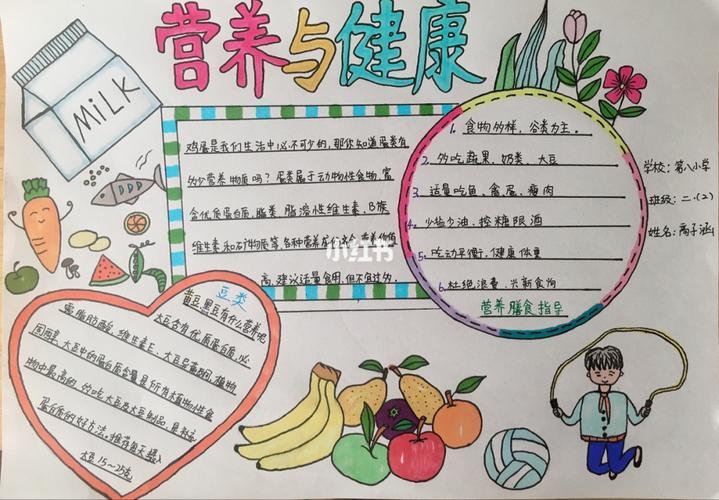 营养与健康
MiLK
鸡蛋是我们生活中必不可少的,那你知道蛋类有
多少营养物质吗?蛋类属于动物性食物,富
含优质蛋白质,脂类 脂溶性维生素、B族
维生素和矿物质等,各种营养成们齐全 营养价值
高,建议适量食用,但不宜过多。
小红书
1. 食物多样,谷类为主。
2. 多吃蔬果、奶类、大豆
3. 适量吃鱼、禽蛋、瘦肉
4. 少盐少油、控糖限酒
5. 吃动平衡,健康体重
6. 杜绝浪费、兴新食尚
营养膳食指导
学校:第八小学
班级:二.(2)
姓名:芮子涵
豆类
黄豆,黑豆有什么营养呢
大豆含有优质蛋白质,必
需脂肪酸,维生素E、大豆异黄酮,植物
固醇,大豆中的蛋白质含量是所有植物性食
物中最高的,多吃大豆及大豆制品,是补充
蛋白质的好方法。推荐每天摄入
大豆15~25克